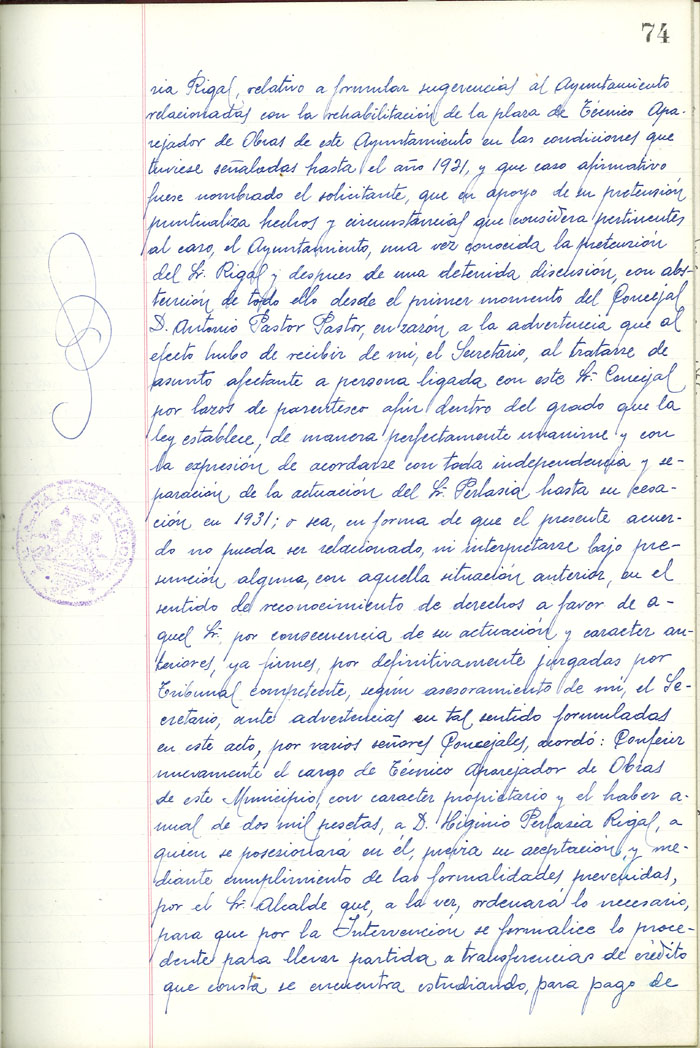 74
ria Rigal, relativo a formular sugerencias al Ayuntamiento
relacionadas con la rehabilitación de la plaza de Técnico Apa-
rejador de Obras de este Ayuntamiento en las condiciones que
tuviese señaladas hasta el año 1931, y que caso afirmativo
fuese nombrado el solicitante, que en apoyo de su pretensión
puntualiza hechos y circunstancias que considera pertinentes
al caso, el Ayuntamiento, una vez conocida la pretensión
del Sr. Rigal y despues de una detenida discusión, con abs-
tención de todo ello desde el primer momento del Concejal
D. Antonio Pastor Pastor, en razón a la advertencia que al
efecto hubo de recibir de mi, el Secretario, al tratarse de
asunto afectante a persona ligada con este Sr. Concejal
por lazos de parentesco afín dentro del grado que la
ley establece, de manera perfectamente unanime y con
la expresión de acordarse con toda independencia y se-
paración de la actuación del Sr. Perlasia hasta su cesa-
ción en 1931; o sea, en forma de que el presente acuer-
do no pueda ser relacionado, ni interpretarse bajo pre-
sunción alguna, con aquella situación anterior, en el
sentido de reconocimiento de derechos a favor de a-
quel Sr. por consecuencia de su actuación y caracter an-
teriores, ya firmes, por definitivamente juzgadas por
Tribunal competente, según asesoramiento de mi, el Se-
cretario, ante advertencias en tal sentido formuladas
en este acto, por varios señores Concejales, acordó: Conferir
nuevamente el cargo de Técnico Aparejador de Obras
de este Municipio, con caracter propietario y el haber a-
nual de dos mil pesetas, a D. Higinio Perlasia Rigal, a
quien se posesionará en él, previa su aceptación, y me-
diante cumplimiento de las formalidades prevenidas,
por el Sr. Alcalde que, a la vez, ordenará lo necesario,
para que por la Intervención se formalice lo proce-
dente para llevar partida a transferencias de crédito
que consta se encuentra estudiando, para pago de